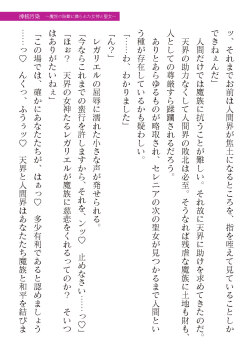 神核汚染
～魔悦の烙印に堕ちた女神と聖女～
ッ、それまでお前は人間界が焦土になるところを、指を咥えて見ていることしか
できねぇんだ」
人間だけでは魔族に抗うことが難しい。それ故に天界に助けを求めてきたのだ。
天界の助力なくして人間界の敗北は必至。そうなれば残虐な魔族に土地も財も、
人としての尊厳すら蹂躙されるだろう。
ありとあらゆるものが略取され、セレニアの次の聖女が見つかるまで人間とい
う種が存在しているかも疑わしい。
「……わ、わかりました」
「ん?」
レガリエルの屈辱に濡れた小さな声が発せられる。
「今ならこれまでの蛮行を許しますから。それを、ンッ♡ 止めなさい……っ♡」
「ほぉ? 天界の女神たるレガリエルが魔族に慈悲をくれるってのか? そいつ
はありがたいねぇ」
「この場では、確かにあなたたちが、はぁっ♡ 多少有利であると認めましょう
……っ♡ んくっ、ふうぅッ♡ 天界と人間界はあなたたち魔族と和平を結びま